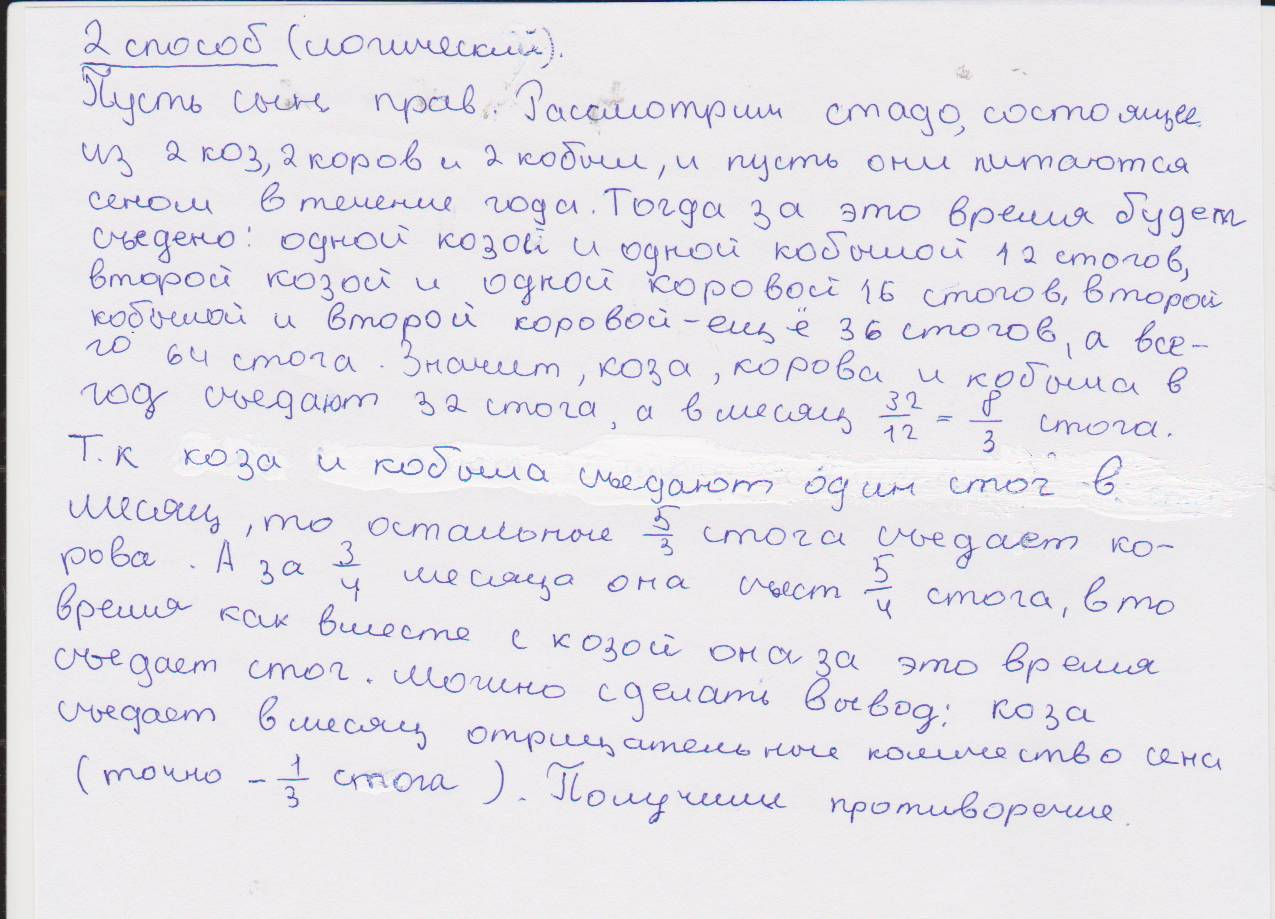 2 способ (логический).
Пусть сын прав. Рассмотрим стадо, состоящее
из 2 коз, 2 коров и 2 кобыл, и пусть они питаются
сеном в течение года. Тогда за это время будет
съедено: одной козой и одной кобылой 12 стогов,
второй козой и одной коровой 16 стогов, второй
кобылой и второй коровой – ещё 36 стогов, а все-
го 64 стога. Значит, коза, корова и кобыла в
год съедают 32 стога, а в месяц 32/12 = 8/3 стога.
Т.к коза и кобыла съедают один стог в
месяц, то остальные 5/3 стога съедает ко-
рова. А за 3/4 месяца она съест 5/4 стога, в то
время как вместе с козой она за это время
съедает стог. Можно сделать вывод: коза
съедает в месяц отрицательное количество сена
(точно – 1/3 стога). Получили противоречие.